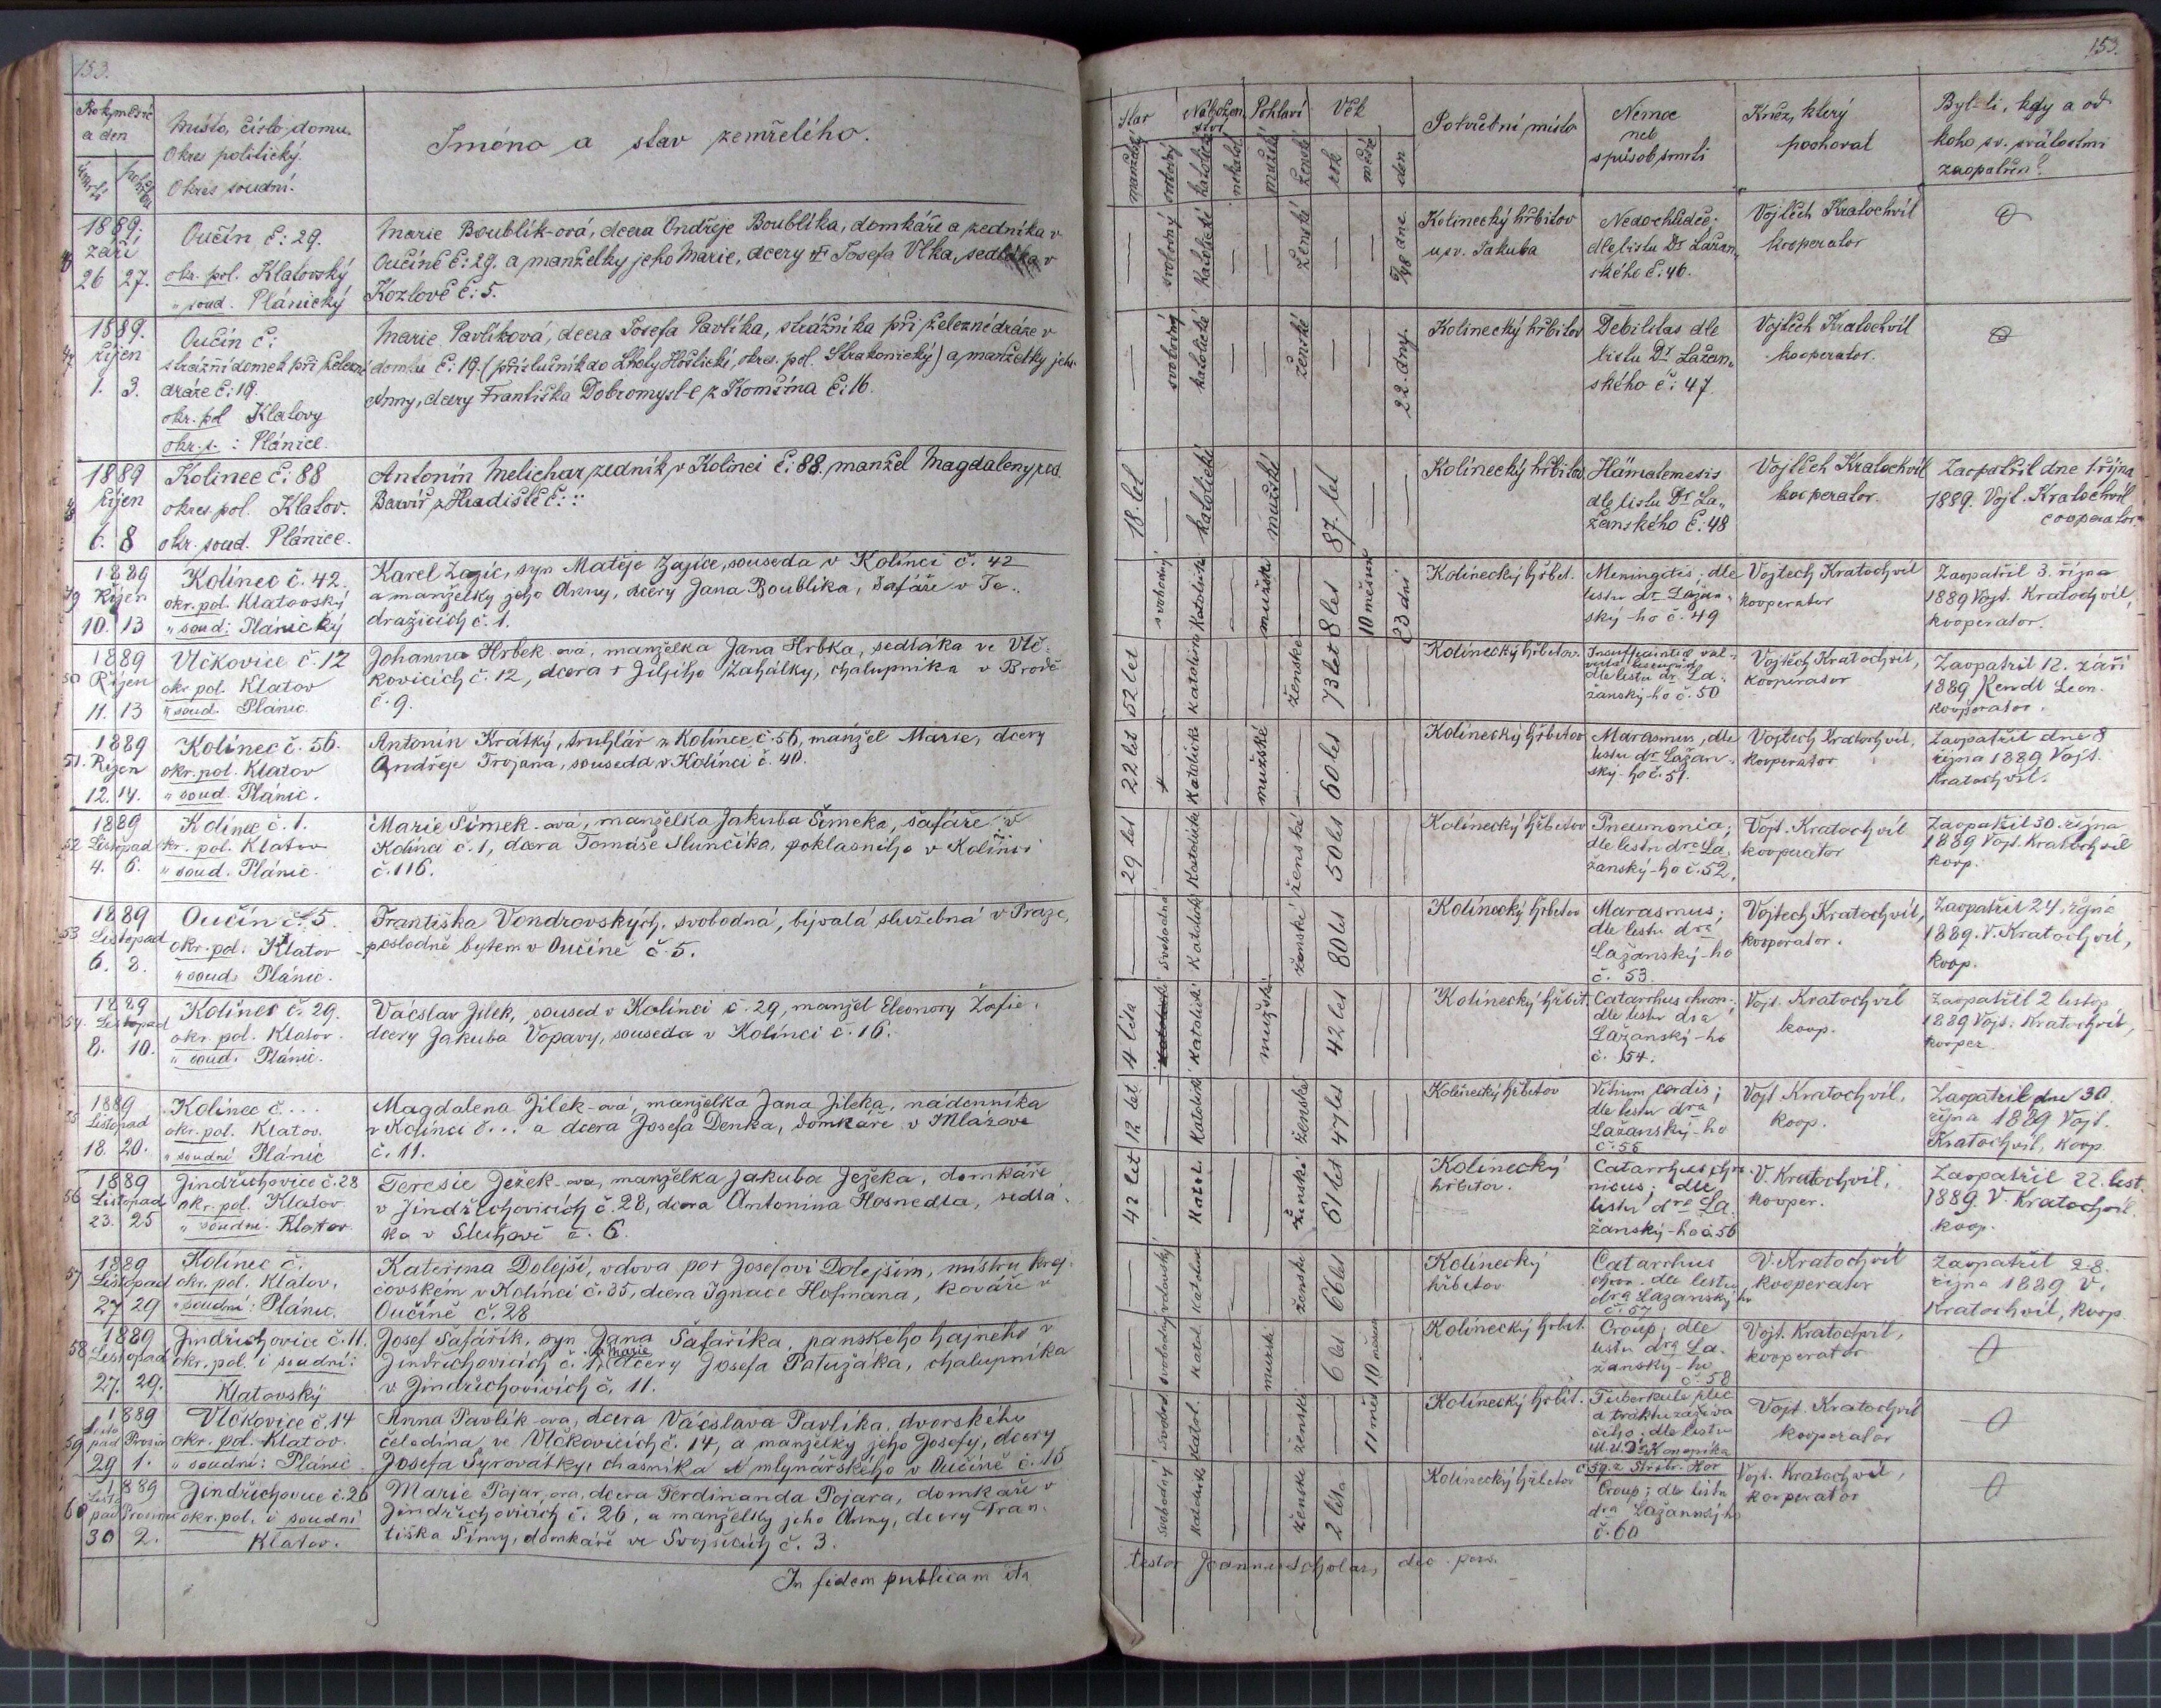 153.
Rok, měsíc
a den
úmrtí
pohřbu
Místo, číslo domu.
Okres politický.
Okres soudní.
Jméno a stav zemřelého.
1889.
září
26 27.
Oučín č: 29.
okr. pol. Klatovský
" soud. Plánický
Marie Boublík-ová, dcera Ondřeje Boublíka, domkáře a zedníka v
Oučíně č: 29. a manželky jeho Marie, dcery Josefa Vlka, sedláka v
Kozlově č: 5.
1889.
říjen
1. 3.
Oučín č:
strážní domek při železné
dráze č: 19.
okr. pol Klatovy
okr. s. : Plánice.
Marie Pavlíková, dcera Josefa Pavlíka, strážníka při železné dráze v
domku č: 19. (příslušník do Lhoty Hoslické, okres. pol. Strakonický) a manželky jeho
Anny, dcery Františka Dobromysl-e z Komšína č: 16.
1889
říjen
6. 8
Kolinec č: 88
okres pol. Klatov.
okr. soud. Plánice.
Antonín Melichar, zedník v Kolinci č: 88, manžel Magdaleny roz.
z Hradiště č:
1889
49 Říjen
10. 13
Kolínec č. 42.
okr. pol. Klatovský
" soud: Plánický
Karel Zajíc, syn Matěje Zajíce, souseda v Kolínci č. 42
a manželky jeho Anny, dcery Jana Boublíka, šafáře v Te-
dražicích č. 1.
1889
50 Říjen
11. 13
Vlčkovice č. 12
okr pol. Klatov
" soud. Plánic.
Johanna Hrbek-ová, manželka Jana Hrbka, sedláka ve Vlč-
kovicích č. 12, dcera † Jiljího Zahálky, chalupníka v Brodě
č. 9.
1889
51. Říjen
12. 14.
Kolínec č. 56.
okr. pol. Klatov
" soud. Plánic.
Antonín Krátký, truhlář z Kolínce č. 56, manžel Marie, dcery
Ondřeje Trojana, souseda v Kolínci č. 40.
1889
52 Listopad
4. 6.
Kolínec č. 1.
okr. pol. Klatov
" soud. Plánic.
Marie Šimek-ová, manželka Jakuba Šimeka, šafáře v
Kolínci č. 1, dcera Tomáše Slunčíka, poklasného v Kolínci
č. 116.
1889
53 Listopad
6. 8.
Oučín č. 5
okr. pol. Klatov
" soud. Plánic.
Františka Vondrovských, svobodná, bývalá služebná v Praze,
posledně bytem v Oučíně č. 5.
1889
54. Listopad
8. 10.
Kolínec č. 29.
okr. pol. Klatov.
" soud. Plánic.
Václav Jílek, soused v Kolínci č. 29, manžel Eleonory Žofie.
dcery Jakuba Vopavy, souseda v Kolínci č. 16.
1889
55 Listopad
18. 20.
Kolínec č. ...
okr. pol. Klatov.
" soudní Plánic
Magdalena Jílek-ová, manželka Jana Jíleka, nádenníka
v Kolínci č... a dcera Josefa Denka, domkáře v Mlázově
č. 11.
1889
56 Listopad
23. 25
Jindřichovice č. 28
okr. pol. Klatov
" soudní. Klatov.
Teresie Ježek-ova, manželka Jakuba Ježeka, domkáře
v Jindřichovicích č. 28, dcera Antonína Hosnedla, sedlá-
ka v Sluhově č. 6.
1889
57 Listopad
27 29
Kolínec č.
okr. pol. Klatov.
" soudní: Plánic.
Kateřina Dolejší, vdova po † Josefovi Dolejším, mistru krej-
čovském v Kolínci č. 35, dcera Ignace Hofmana, kováře v
Oučíně č. 28
1889
58 Listopad
27. 29.
Jindřichovice č. 11.
okr. pol. i soudní:
Klatovský
Josef Šafářík, syn Jana Šafaříka, panského hajného v
Jindřichovicích č. 11, a Marie dcery Josefa Potužáka, chalupníka
v Jindřichovicích č. 11.
1889
59 Listopad Prosin
29 1.
Vlčkovice č. 14
okr. pol. Klatov.
" soudní: Plánic
Anna Pavlík-ova, dcera Václava Pavlíka, dvorského
čeledína ve Vlčkovicích č. 14, a manželky jeho Josefy, dcery
Josefa Syrovátky, chasníka mlynářského v Oučíně č. 15
1889
60 Listopad Prosinec
30 2.
Jindřichovice č. 26
okr. pol. i soudní
Klatov.
Marie Pojar-ova, dcera Ferdinanda Pojara, domkáře v
Jindřichovicích č. 26, a manželky jeho Anny, dcery Fran-
tiška Šímy, domkáře ve Svojšicích č. 3.
In fidem publicam ita
153.
Stav
Nábožen-
ství
Pohlaví
Věk
manželský
svobodný
katolické
nekatol.
mužské
ženské
rok
měsíc
den
Pohřební místo
Nemoc
neb
způsob smrti
Kněz, který
pochoval
Byl-li, kdy a od
koho sv. svátostmi
zaopatřen?
svobodný katolické ženské
Kolinecký hřbitov
u sv. Jakuba
Nedochůdče.
dle listu Dr Lažan-
ského č: 46.
Vojtěch Kratochvíl
kooperator
svobodný katolické ženské 22. dny.
Kolinecký hřbitov
Debilitas dle
listu Dr Lažan-
ského č: 47
Vojtěch Kratochvíl
kooperator.
18. let katolické mužské 87 let
Kolínecký hřbitov
Hämatemesis
dle listu Dr La-
žanského č: 48
Vojtěch Kratochvíl
kooperator.
Zaopatřil dne 1 října
1889. Vojt. Kratochvíl
cooperator.
svobodný katolické mužské 8 let 10 měsíců 23 dní
Kolínecký hřbit.
Meningitis; dle
listu dr Lažan-
ský-ho č. 49
Vojtech Kratochvíl
kooperator
Zaopatřil 3. října
1889 Vojt. Kratochvíl,
kooperator.
52 let ženské 73 let
Kolínecký hřbitov.
dle listu dr. La-
žanský-ho č. 50
Vojtěch Kratochvíl,
kooperator
Zaopatřil 12. září
1889 Rendl Leon.
kooperator.
22 let katolické mužské 60 let
Kolínecký hřbitov
Marasmus, dle
listu dr Lažan-
ský-ho č. 51.
Vojtech Kratochvíl,
kooperator
Zaopatřil dne 8
října 1889 Vojt.
Kratochvíl.
29 let katolické ženské 50 let
Kolínecký hřbitov
Pneumonia;
dle listu dra La-
žanský-ho č. 52.
Vojt. Kratochvíl
kooperator
Zaopatřil 30. října
1889 Vojt. Kratochvíl
koop.
svobodná ženské 80 let
Kolínecký hřbitov
Marasmus;
dle listu dra
Lažanský-ho
č. 53
Vojtech Kratochvíl,
kooperator.
Zaopatřil 24. října
1889. V. Kratochvíl,
koop.
14 léta katolické mužské 42 let
Kolínecký hřbit.
Catarrhus chron.
dle listu dra
Lažanský-ho
č. 54.
Vojt. Kratochvíl
koop.
Zaopatřil 2 listop
1889 Vojt. Kratochvíl,
kooper.
12 let katolické ženské 47 let
Kolínecký hřbitov
Vitium cordis;
dle listu dra
Lažanský-ho
č. 55
Vojt Kratochvíl,
koop.
Zaopatřil dne 30.
října 1889 Vojt.
Kratochvíl, koop.
42 let katol. ženské 61 let
Kolínecký
hřbitov.
Catarrhus chro-
nicus; dle
listu dra La-
žanský-ho č. 56
V. Kratochvíl,
kooper.
Zaopatřil 22. list.
1889. V Kratochvíl.
koop.
vdovský ženské 66 let
Kolínecký
hřbitov
Catarrhus
chron. dle listu
dra Lažanský-ho
č. 57
V. Kratochvíl
kooperator
Zaopatřil 28.
října 1889 V.
Kratochvíl, koop
svobodný katol. mužské 6 let 10 měsíců
Kolínecký hřbit.
Croup; dle
listu dra La-
žanský-ho
č. 58
Vojt. Kratochvíl,
kooperator
svobod katol. ženské 11 měs
Kolínecký hřbit.
Tuberkule plic
a traktu zaživa
cího. dle listu
M. U. Dr Konopíka
č 59. z Stříbr. Hor
Vojt. Kratochvíl
kooperator
svobodný katolické ženské 2 léta
Kolínecký hřbitov
Croup; dle listu
dra Lažanský-ho
č. 60
Vojt. Kratochvíl,
kooperator
testor Joannes Scholar,